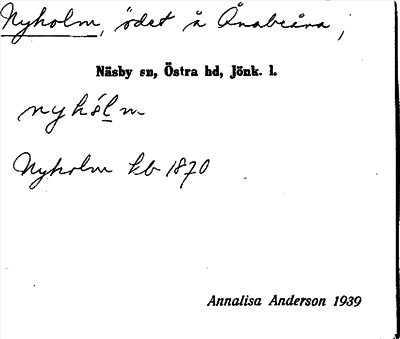 Nyholm, ödet å Ånabeåra;
Näsby sn, Östra hd, Jönk. l.
nyhól̲m
Nyholm kb 1870
Annalisa Anderson 1939